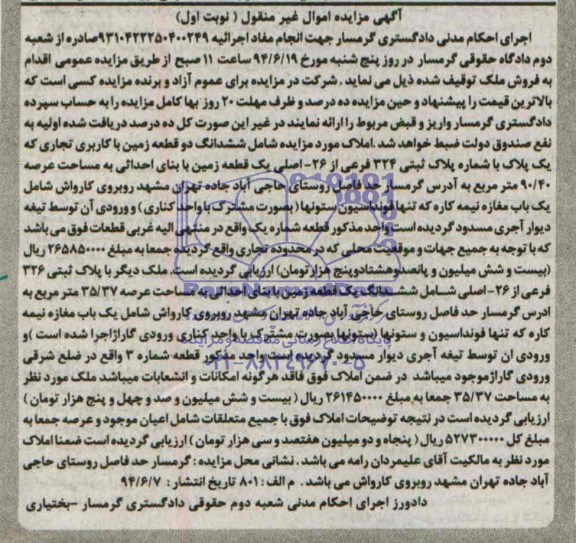 آگهی مزایده اموال غیر منقول ( نوبت اول)
اجرای احکام مدنی دادگستری گرمسار جهت انجام مفاد اجرائیه ۹۳۱۰۴۲۲۲۵۰۴۰۰۲۴۹صادره از شعبه
دوم دادگاه حقوقی گرمسار در روز پنج شنبه مورخ ۹۴/۶/۱۹ ساعت ۱۱ صبح از طریق مزایده عمومی اقدام
به فروش ملک توقیف شده ذیل می نماید . شرکت در مزایده برای عموم آزاد و برنده مزایده کسی است که
بالاترین قیمت را پیشنهاد و حین مزایده ده درصد و ظرف مهلت ۲۰ روز بها کامل مزایده را به حساب سپرده
دادگستری گرمسار واریز و قبض مربوط را ارائه نمایند در غیر این صورت کل ده درصد دریافت شده اولیه به
نفع صندوق دولت ضبط خواهد شد .املاک مورد مزایده شامل ششدانگ دو قطعه زمین با کاربری تجاری که
یک پلاک با شماره پلاک ثبتی ۳۲۴ فرعی از ۲۶- اصلی یک قطعه زمین با بنای احداثی به مساحت عرصه
۹۰/۴۰ متر مربع به آدرس گرمسار حد فاصل روستای حاجی آباد جاده تهران مشهد روبروی کارواش شامل
یک باب مغازه نیمه کاره که تنها فونداسیون ستونها ( بصورت مشترک با واحد کناری ) و ورودی آن توسط تیغه
دیوار آجری مسدود گردیده است واحد مذکور قطعه شماره یک واقع در منتهی الیه غربی قطعات فوق می باشد
که با توجه به جمیع جهات و موقعیت محلی که در محدوده تجاری واقع گردیده جمعا به مبلغ ۲۶۵۸۵۰۰۰۰ ریال
(بیست و شش میلیون و پانصدوهشتادوپنج هزارتومان) ارزیابی گردیده است. ملک دیگر با پلاک ثبتی ۳۲۶
فرعی از ۲۶- اصلی شامل ششدانگ یک قطعه زمین با بنای احداثی به مساحت عرصه ۳۵/۳۷ متر مربع به
ادرس گرمسار حد فاصل روستای حاجی آباد جاده تهران مشهد روبروی کارواش شامل یک باب مغازه نیمه
کاره که تنها فونداسیون و ستونها (ستونها بصورت مشترک با واحد کناری ورودی گاراژاجرا شده است )و
ورودی ان توسط تیغه آجری دیوار مسدود گردیده است واحد مذکور قطعه شماره ۳ واقع در ضلع شرقی
ورودی گاراژموجود میباشد در ضمن املاک فوق فاقد هرگونه امکانات و انشعابات میباشد ملک مورد نظر
به مساحت ۳۵/۳۷ جمعا به مبلغ ۲۶۱۴۵۰۰۰۰ ریال ( بیست و شش میلیون و صد و چهل و پنج هزار تومان )
ارزیابی گردیده است در نتیجه توضیحات املاک فوق با جمیع متعلقات شامل اعیان موجود و عرصه جمعا به
مبلغ کل ۵۲۷۳۰۰۰۰۰ ریال ( پنجاه و دو میلیون هفتصد و سی هزار تومان ) ارزیابی گردیده است ضمنا املاک
مورد نظر به مالکیت آقای علیمردان رامه می باشد . نشانی محل مزایده : گرمسار حد فاصل روستای حاجی
آباد جاده تهران مشهد روبروی کارواش می باشد . م الف : ۸۰۱ تاریخ انتشار : ۹۴/۶/۷
دادورز اجرای احکام مدنی شعبه دوم حقوقی دادگستری گرمسار -بختیاری